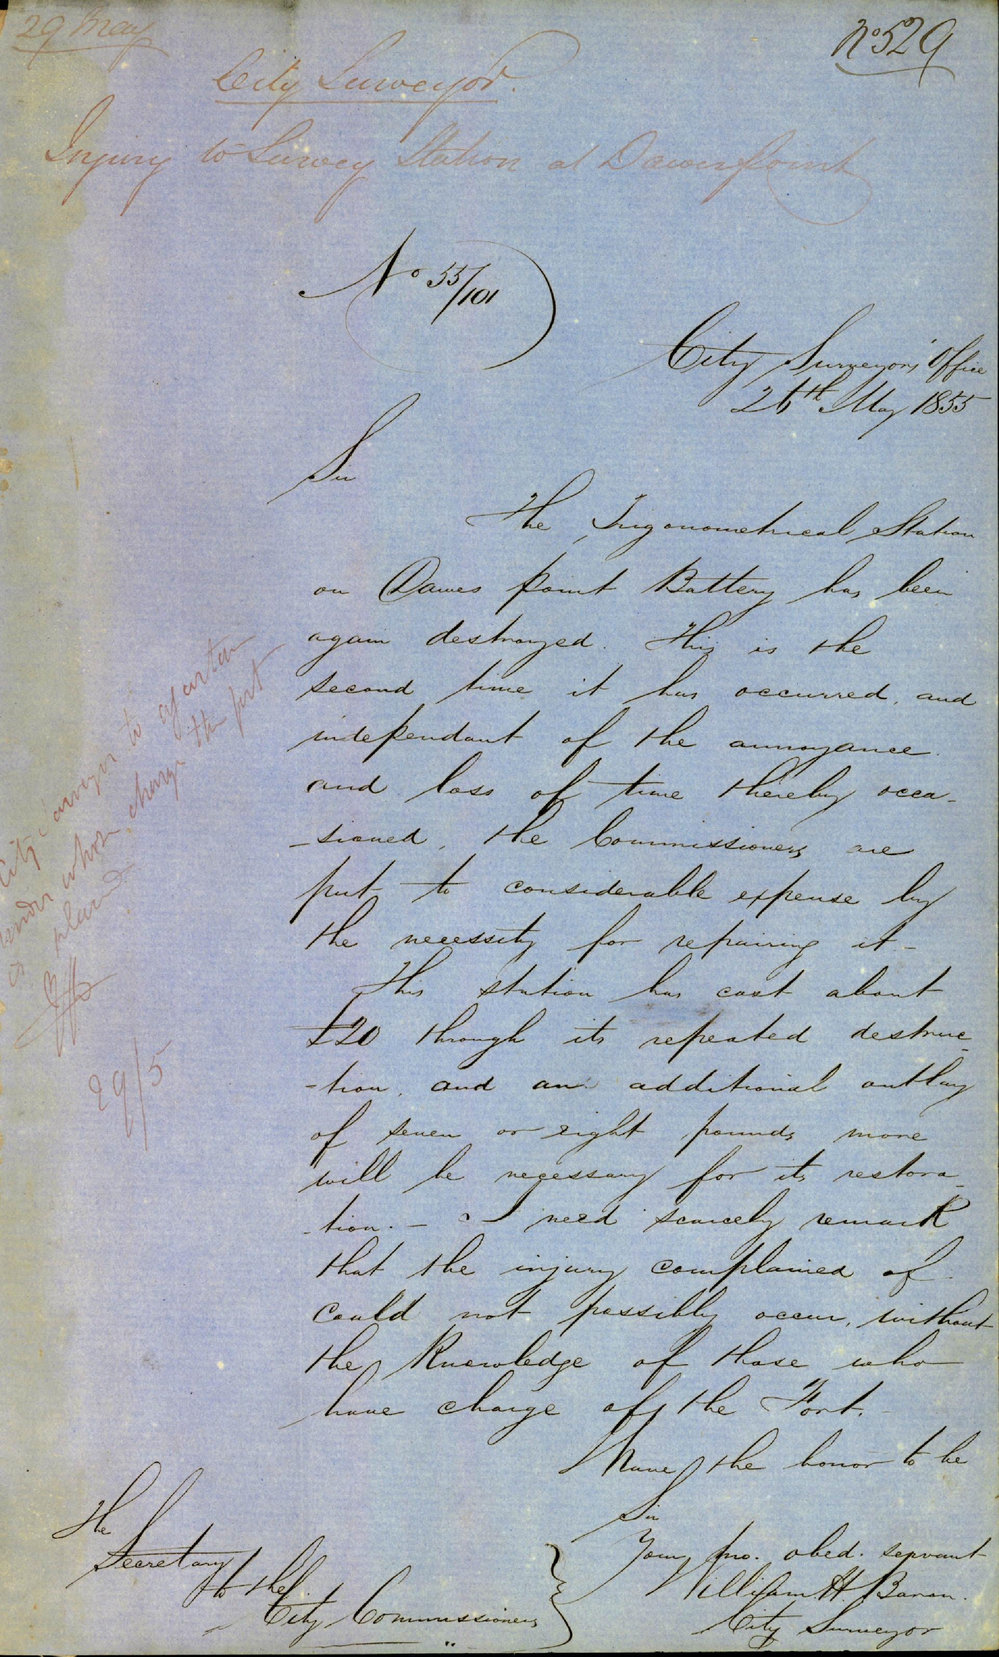 29 May
No 529
City Surveyor.
Injury to Survey Station at Dawes point
No 55/101
City Surveyors' Office
26th May 1855
Sir
The Trigonometrical Station
on Dawes point Battery has been
again destroyed. This is the
second time it has occurred, and
independant of the annoyance
and loss of time thereby occa-
-sioned, the Commissioners are
put to considerable expense by
the necessity for repairing it -
This station has cost about
£20 through its repeated destruc-
-tion, and an additional outlay
of seven or eight pounds more
will be necessary for its restora-
-tion. - I need scarcely remark
that the injury complained of
could not possibly occur, without
the Knowledge of those who
have charge of the Fort.
I have the honor to be
Sir
Your mo. obed. servant
William H. Baron.
City Surveyor
The
Secretary
to the
City Commissioners
City Surveyor to ascertain
under whose charge the fort
is placed
29/5